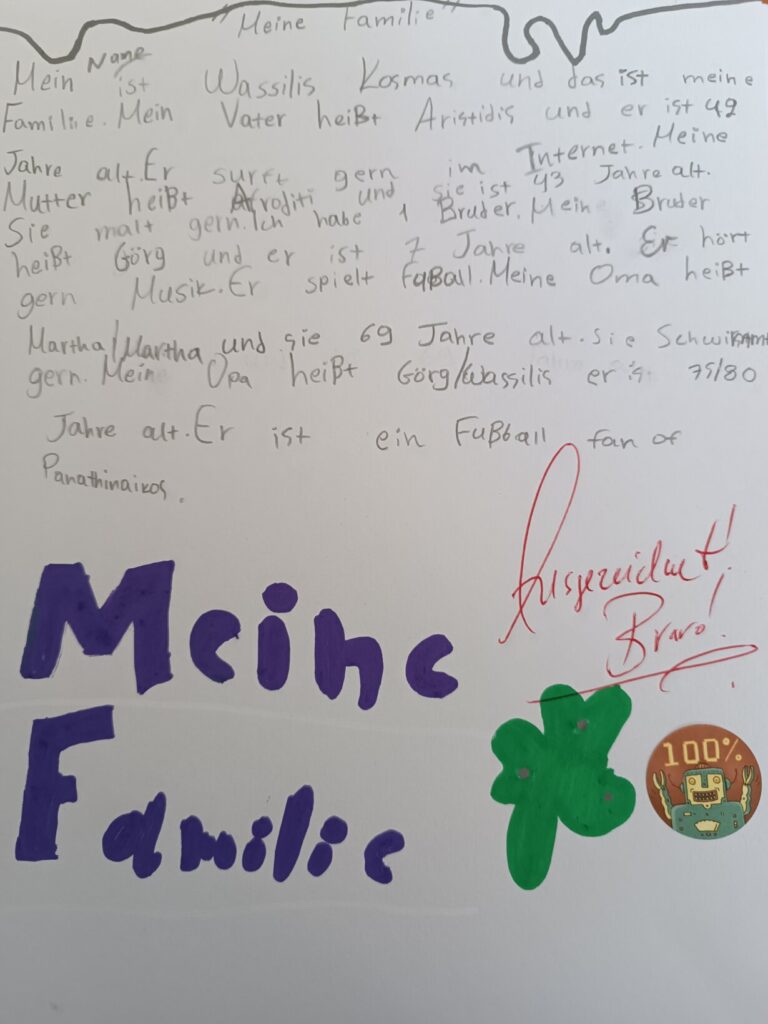 "Meine Familie"
Mein Name ist Wassilis Kosmas und das ist meine
Familie. Mein Vater heißt Aristidis und er ist 42
Jahre alt. Er surft gern im Internet. Meine
Mutter heißt Afroditi und sie ist 43 Jahre alt.
Sie malt gern. Ich habe 1 Bruder. Mein Bruder
heißt Görg und er ist 7 Jahre alt. Er hört
gern Musik. Er spielt Fußball. Meine Oma heißt
Martha/Martha und sie 69 Jahre alt. Sie Schwimmt
gern. Mein Opa heißt Görg/Wassilis er is 75/80
Jahre alt. Er ist ein Fußball fan of
Panathinaikos.
Ausgezeichnet!
Bravo!
Meine
Familie
100%